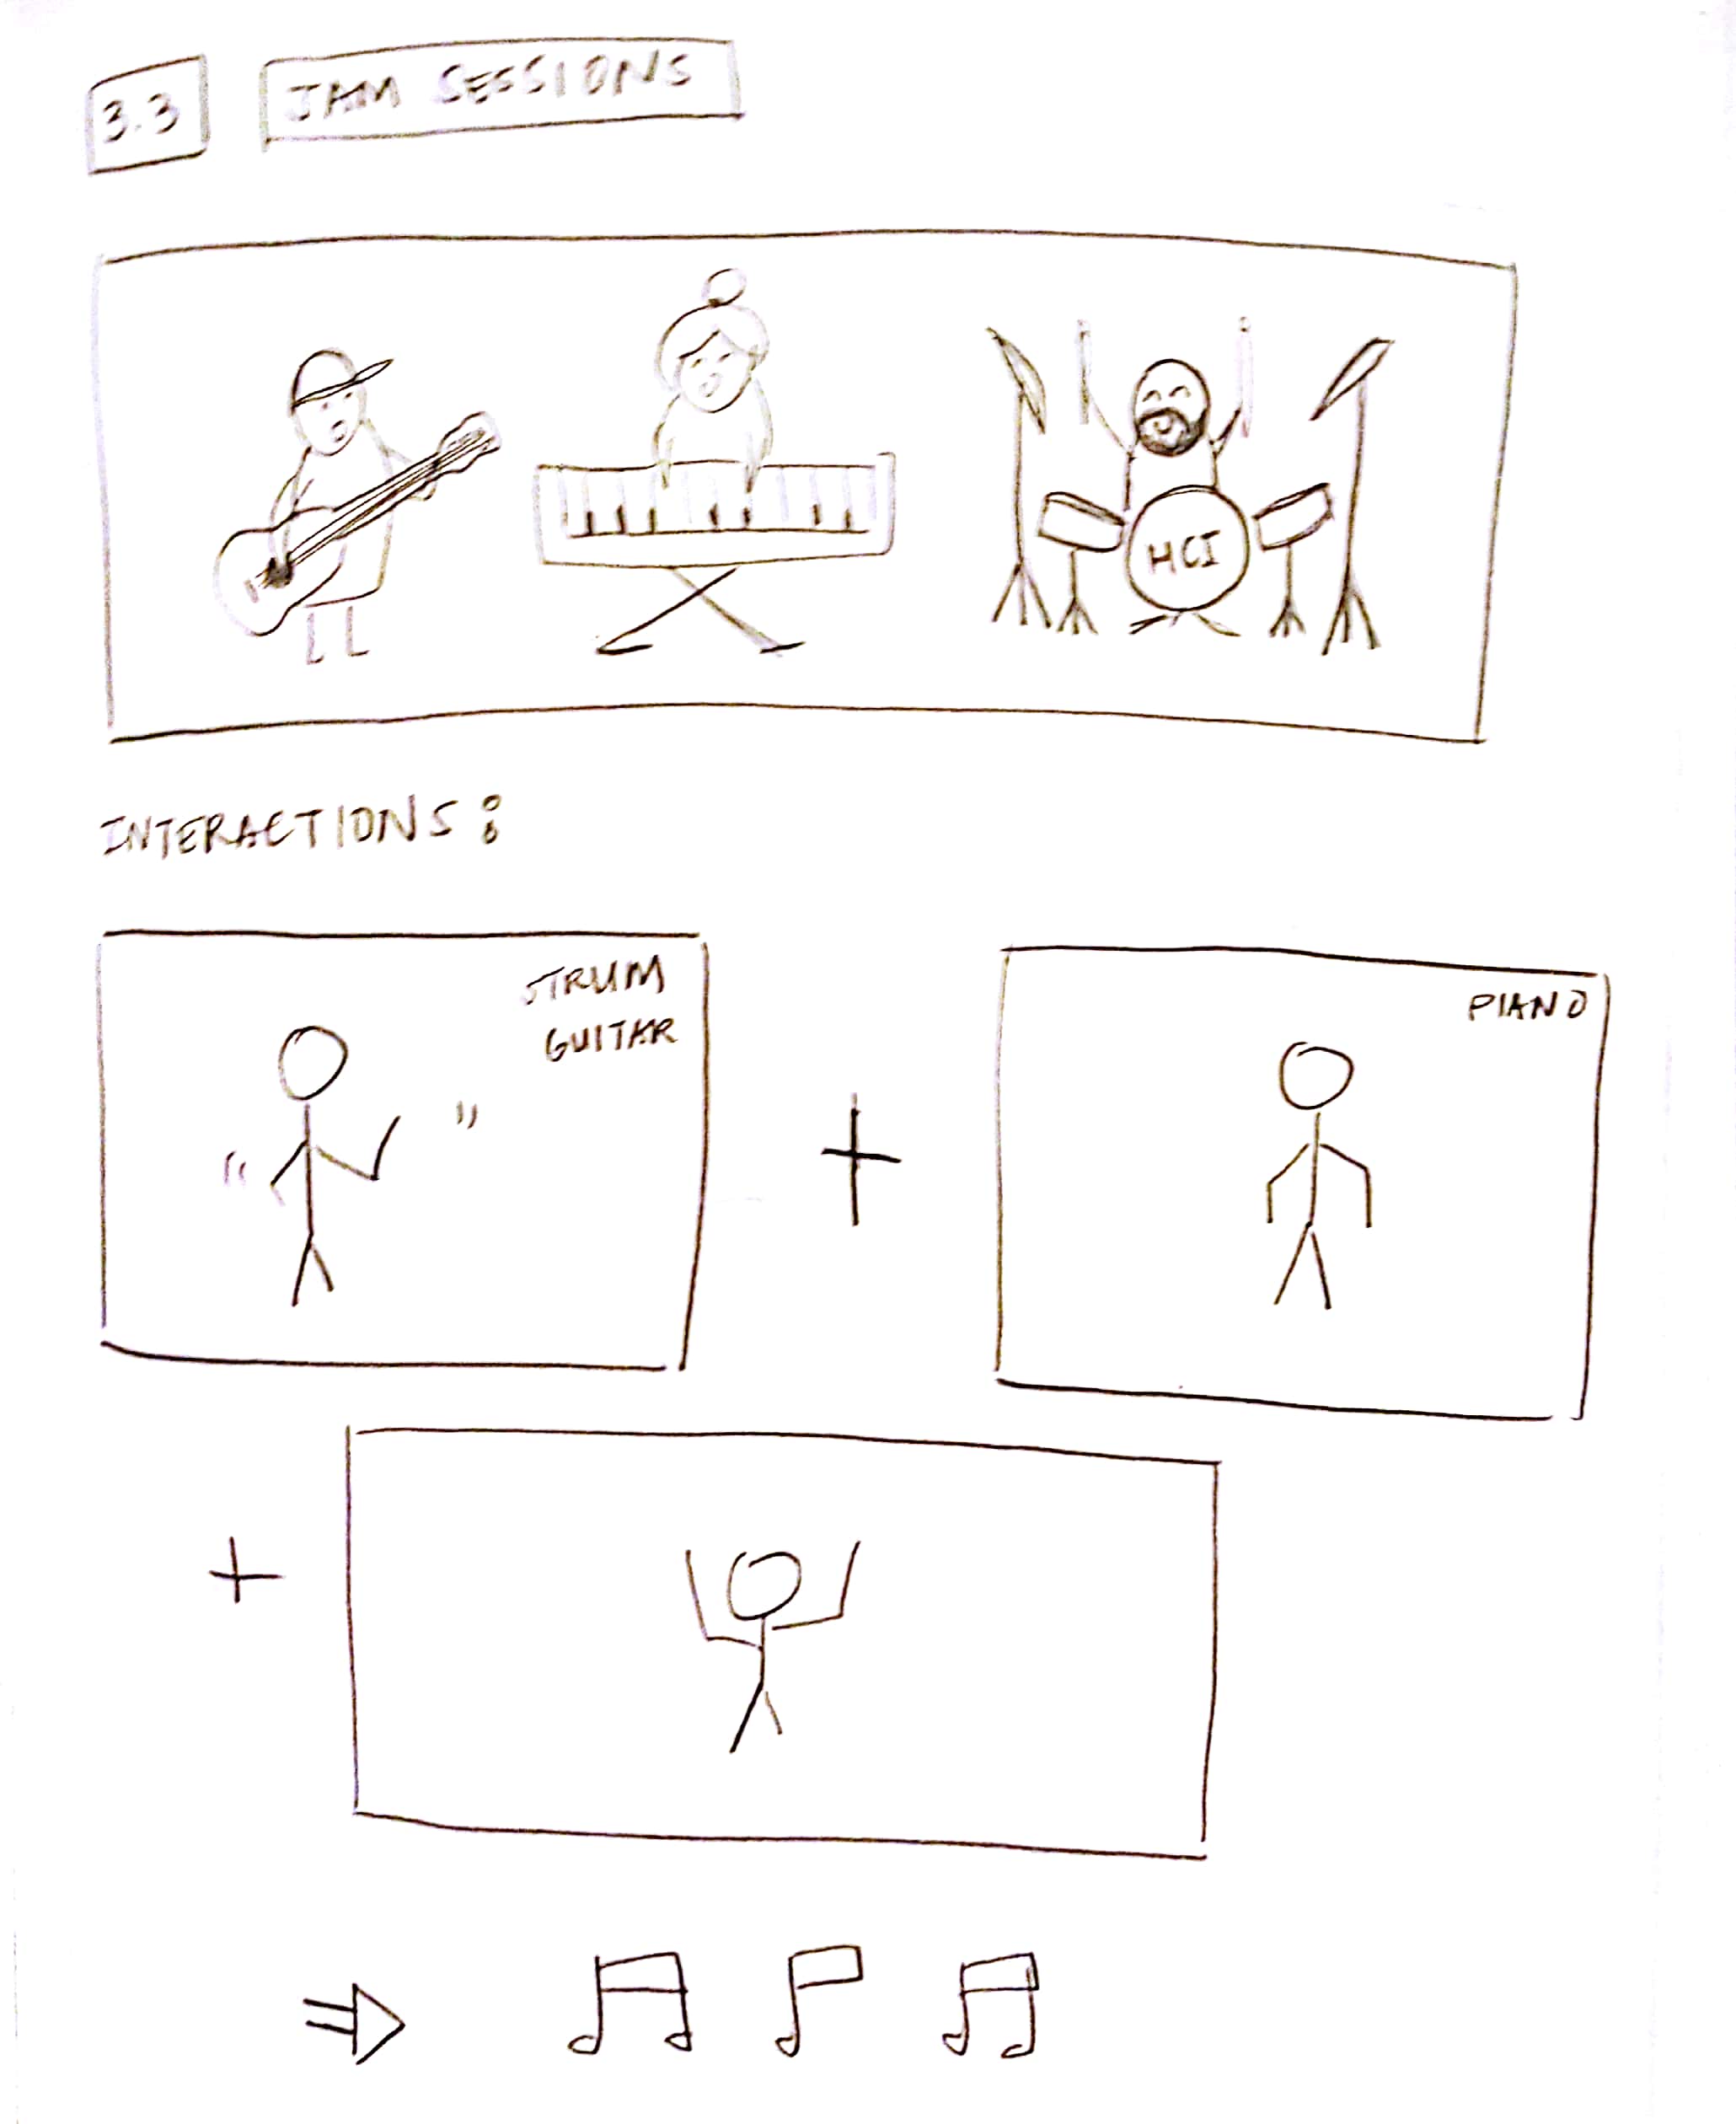 3.3
JAM SESSIONS
HCI
INTERACTIONS:
STRUM
GUITAR
PIANO